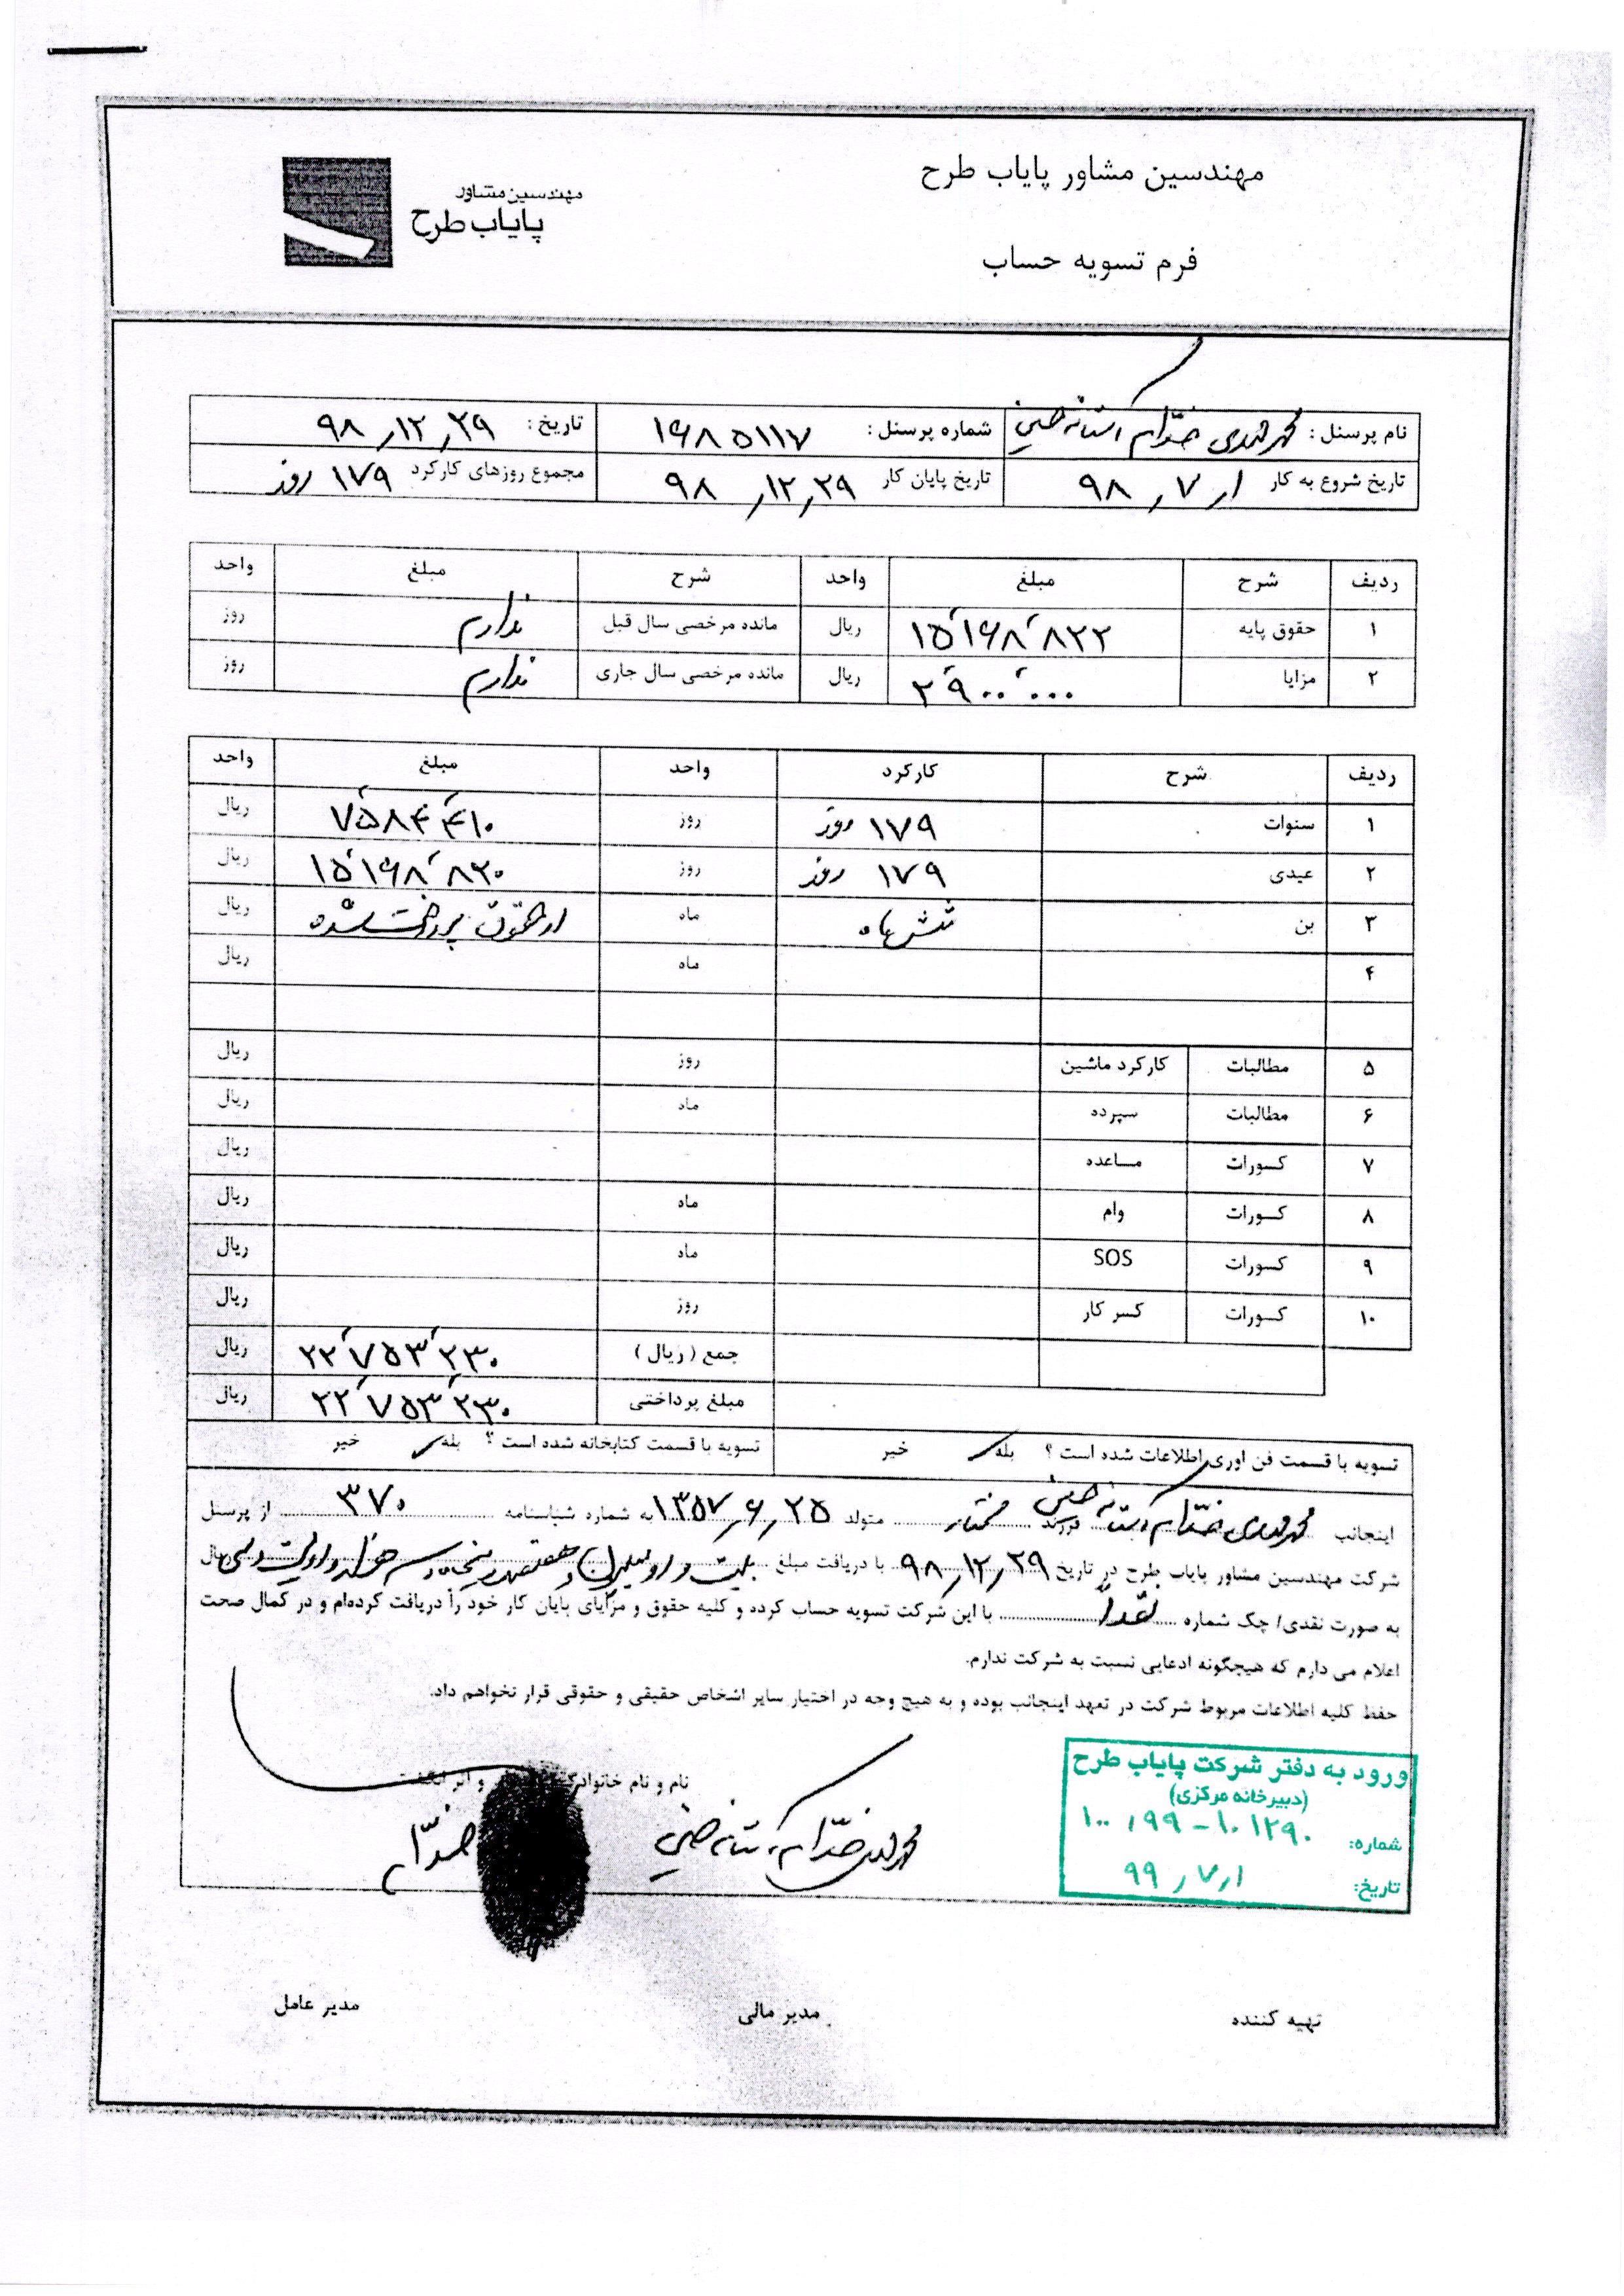 مهندسین مشاور پایاب طرح
مهندسین مشاور
پایاب طرح
فرم تسویه حساب
نام پرسنل : محمد مهدی خدّام آستانه حسینی شماره پرسنل : ۱۶۸۵۱۱۷ تاریخ : ۹۸,۱۲,۲۹
تاریخ شروع به کار ۹۸,۷,۱ تاریخ پایان کار ۹۸,۱۲,۲۹ مجموع روزهای کارکرد ۱۷۹ روز
ردیف شرح مبلغ واحد شرح مبلغ واحد
۱ حقوق پایه ۱۵٬۱۶۸٬۸۲۲ ریال مانده مرخصی سال قبل ندارم روز
۲ مزایا ۲٬۹۰۰٬۰۰۰ ریال مانده مرخصی سال جاری ندارم روز
ردیف شرح کارکرد واحد مبلغ واحد
۱ سنوات ۱۷۹ روز روز ۷٬۵۸۴٬۴۱۰ ریال
۲ عیدی ۱۷۹ روز روز ۱۵٬۱۶۸٬۸۲۰ ریال
۳ بن شش ماه ماه در حقوق پرداخت شده ریال
۴ ماه ریال
۵ مطالبات کارکرد ماشین روز ریال
۶ مطالبات سپرده ماه ریال
۷ کسورات مساعده ریال
۸ کسورات وام ماه ریال
۹ کسورات SOS ماه ریال
۱۰ کسورات کسر کار روز ریال
جمع (ریال) ۲۲٬۷۵۳٬۲۳۰ ریال
مبلغ پرداختی ۲۲٬۷۵۳٬۲۳۰ ریال
تسویه با قسمت فن آوری اطلاعات شده است ؟ بله ✓ خیر تسویه با قسمت کتابخانه شده است ؟ بله ✓ خیر
اینجانب محمد مهدی خدّام آستانه حسینی فرزند مختار متولد ۱۳۵۷,۶,۲۵ به شماره شناسنامه ۳۷۰ از پرسنل
شرکت مهندسین مشاور پایاب طرح در تاریخ ۹۸,۱۲,۲۹ با دریافت مبلغ بیست و دو میلیون و هفتصد و پنجاه و سه هزار و دویست و سی ریال
به صورت نقدی/ چک شماره نقداً با این شرکت تسویه حساب کرده و کلیه حقوق و مزایای پایان کار خود را دریافت کرده‌ام و در کمال صحت
اعلام می دارم که هیچگونه ادعایی نسبت به شرکت ندارم.
حفظ کلیه اطلاعات مربوط شرکت در تعهد اینجانب بوده و به هیچ وجه در اختیار سایر اشخاص حقیقی و حقوقی قرار نخواهم داد.
نام و نام خانوادگی و اثر انگشت
محمد مهدی خدّام آستانه حسینی خدّام
ورود به دفتر شرکت پایاب طرح
(دبیرخانه مرکزی)
شماره: ۱۰۰,۹۹-۱۰۱۲۹۰
تاریخ: ۹۹,۷,۱
تهیه کننده مدیر مالی مدیر عامل